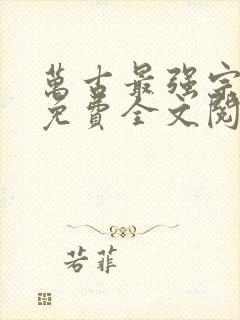 萬古最强宗
免費全文閱
若菲